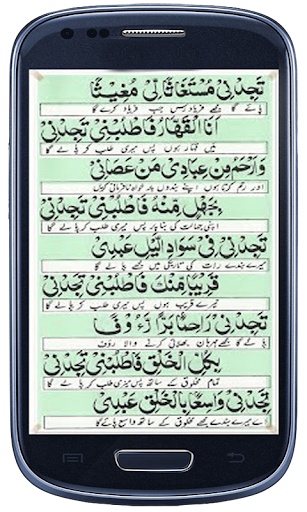 تَجِدْنِيْ مُسْتَغَاثًا لِّيْ مُغِيْثًا
پائے گا مجھے فریاد رس جب فریاد کرے گا
اَنَا الْقَهَّارُ فَاطْلُبْنِيْ تَجِدْنِيْ
میں قہار ہوں پس میری طلب کر پالے گا
وَاَرْحَمُ مِنْ عِبَادِيْ مَنْ عَصَانِيْ
اور رحم کرتا ہوں اپنے بندوں پر خواہ نافرمانی کریں
بِجَهْلٍ مِنْهُ فَاطْلُبْنِيْ تَجِدْنِيْ
اپنی جہالت کی بنا پر پس میری طلب کر پالے گا
تَجِدْنِيْ فِيْ سَوَادِ الَّيْلِ عَبْدِيْ
میرے بندے رات کی تاریکی میں مجھے پالے گا
قَرِيْبًا مِنْكَ فَاطْلُبْنِيْ تَجِدْنِيْ
میرے قریب ہوں پس میری طلب کر پالے گا
تَجِدْنِيْ رَاحِمًا بَرًّا رَءُوْفًا
پائے گا مجھے مہربان بھلائی کرنے والا رؤف
بِكُلِّ الْخَلْقِ فَاطْلُبْنِيْ تَجِدْنِيْ
تمام مخلوق کے ساتھ پس میری طلب کر پالے گا
تَجِدْنِيْ وَاسِعًا بِالْخَلْقِ عَبْدِيْ
اے میرے بندے مجھے مخلوق کے ساتھ واسع پائے گا